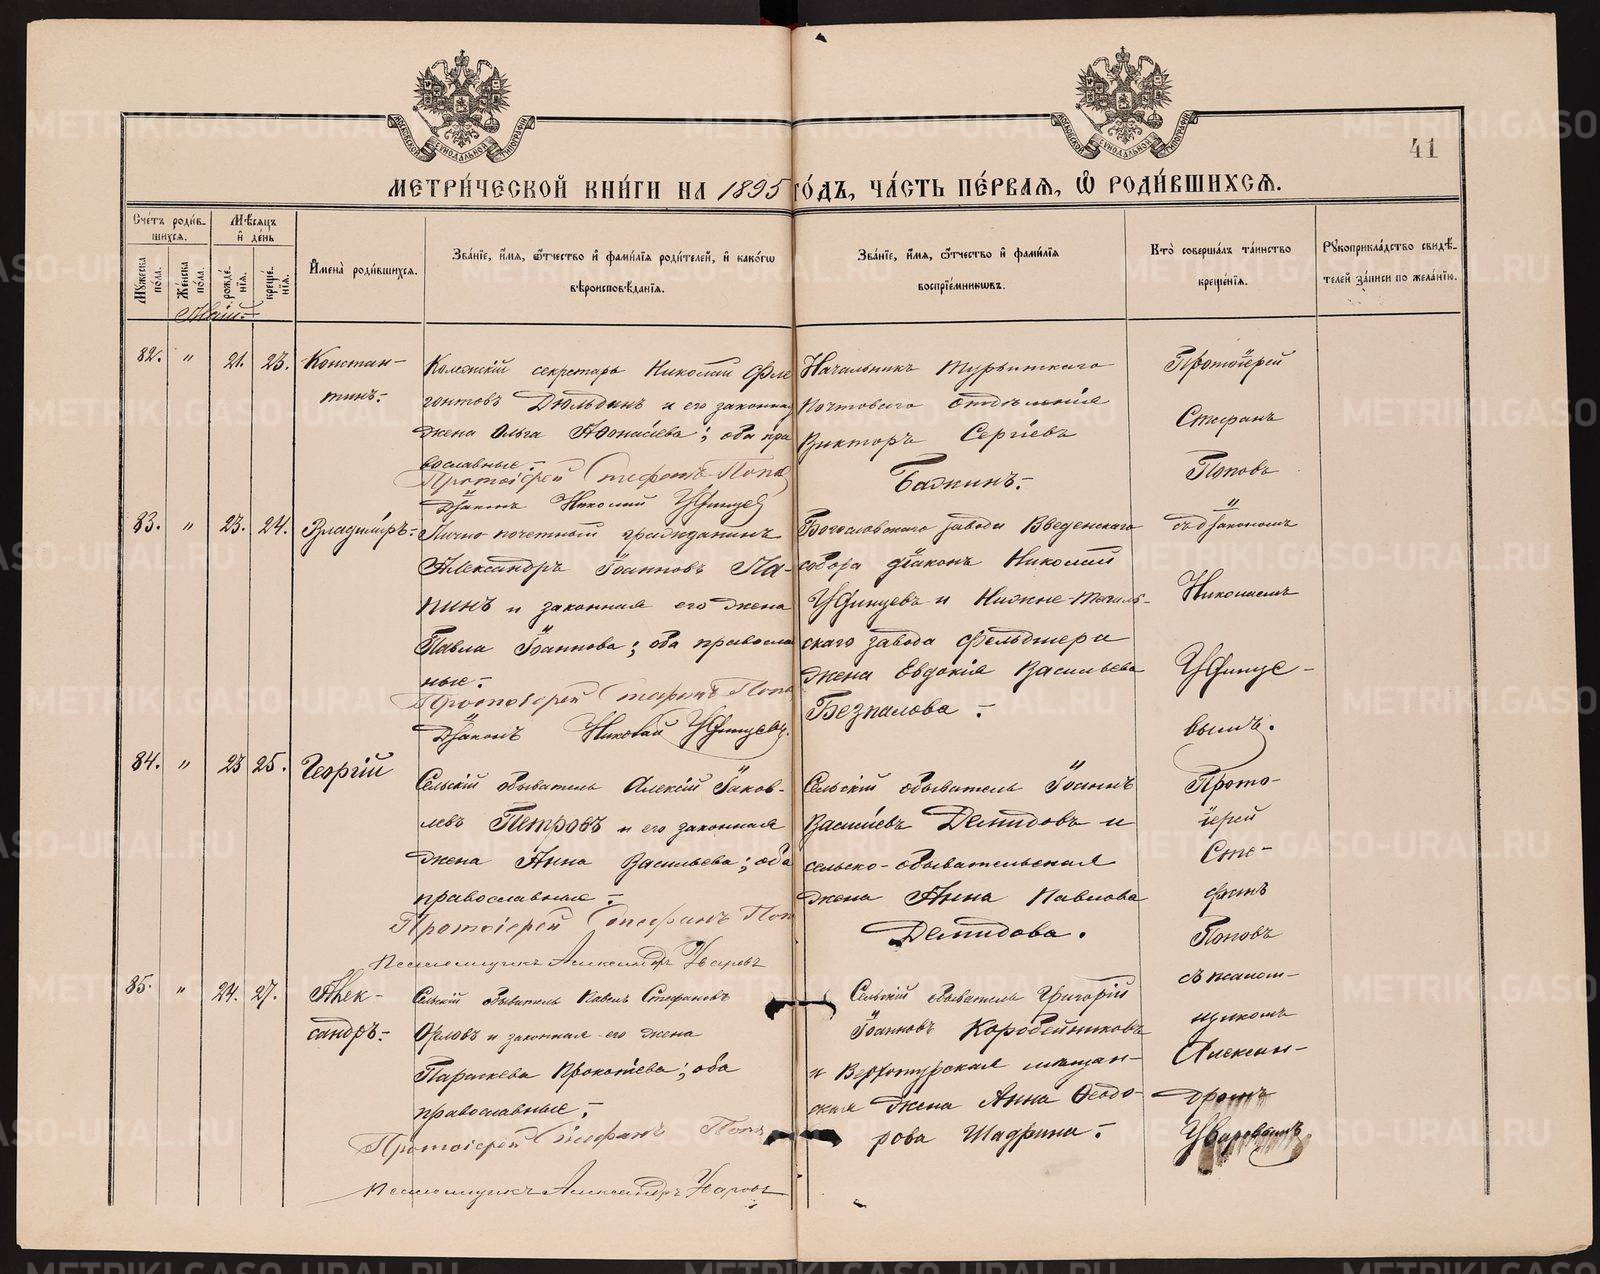 41
МЕТРИ́ЧЕСКОЙ КНИ́ГИ НА 1895 ГО́ДЪ, ЧА́СТЬ ПЕ́РВАѦ, Ѡ҆ РОДИ́ВШИХСѦ.
Сче́тъ роди́в-
шихсѧ.
Мѣ́сѧцъ
и҆ де́нь
Мꙋ́жеска по́ла.
Же́нска по́ла.
рожде́нїѧ.
креще́нїѧ.
И҆мена̀ роди́вшихсѧ.
Зва́нїе, и҆́мѧ, ѻ҆́тчество и҆ фами́лїѧ роди́телей, и҆ како́гѡ
вѣроисповѣ́данїѧ.
Зва́нїе, и҆́мѧ, ѻ҆́тчество и҆ фами́лїѧ
воспрїе́мникѡвъ.
Кто̀ соверша́лъ та́инство
креще́нїѧ.
Рꙋкоприкла́дство свидѣ́-
телей за́писи по жела́нїю.
Май
82. " 21. 23. Констан-
тинъ.-
Коллежскій секретарь Николай Фле
гонтовъ Дюльдинъ и его законная
жена Ольга Аѳонасіева; оба пра
вославные.-
Протоіерей Стефанъ Попо
Діаконъ Николай Уфинцев
Начальникъ Турьинскаго
Почтоваго отдѣленія
Викторъ Сергіевъ
Бажинъ.-
Протоіерей
Стефанъ
Поповъ
83. " 23. 24. Владиміръ.-
Лично почетный гражданинъ
Александръ Іоанновъ Па-
нинъ и законная его жена
Павла Іоаннова; оба правосла
ные.-
Протоіерей Стефанъ Попо
Діаконъ Николай Уфинцевъ.
Богословскаго завода Введенскаго
собора діаконъ Николай
Уфинцевъ и Нижне-Тагиль-
скаго завода фельдшера
жена Евдокія Васильева
Безпалова.-
съ діакономъ
Николаемъ
Уфинце-
вымъ.
84. " 23 25. Георгій
Сельскій обыватель Алексій Іаков-
левъ Петровъ и его законная
жена Анна Васильева; оба
православные.-
Протоіерей Стефанъ Поп
Псаломщикъ Александръ Уваровъ
Сельскій обыватель Іоаннъ
Василіевъ Демидовъ и
сельско-обывательская
жена Анна Павлова
Демидова.
Прото-
іерей
Сте-
фанъ
Поповъ
85. " 24. 27. Алек-
сандръ.-
Сельскій обыватель Павелъ Стефановъ
Орловъ и законная его жена
Параскева Прокопіева; оба
православные.-
Протоіерей Стефанъ Попо
Псаломщикъ Александръ Уваровъ
Сельскій обыватель Григорій
Іоанновъ Коробейниковъ
и Верхотурская мѣщан-
ская жена Анна Ѳеодо-
рова Шадрина.-
съ псалом-
щикомъ
Алексан-
дромъ
Уваровымъ